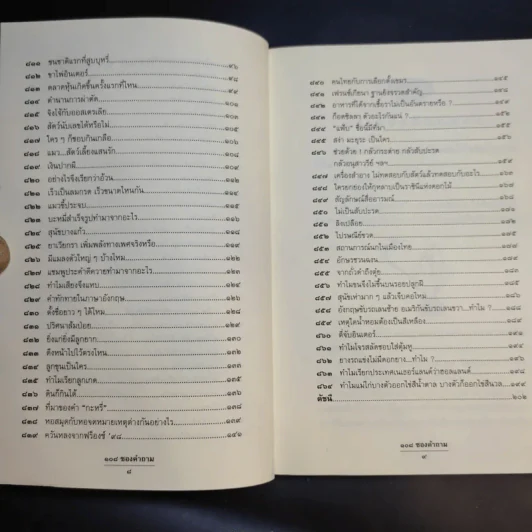 ๘๑๑ ชนชาติแรกที่สูบบุหรี่ ๙๖
๘๑๒ ขาไพ่อินเตอร์ ๙๘
๘๑๓ ตลาดหุ้นเกิดขึ้นครั้งแรกที่ไหน
๘๑๔ ตำนานการผ่าตัด
๘๑๕ จิงโจ้กับออสเตรเลีย
๘๑๖ สัตว์นับเลขได้หรือไม่
๘๑๗ ใคร ๆ ก็ชอบกินเกลือ
๘๑๘ แมว...สัตว์เลี้ยงแสนรัก
๘๑๙ เงินปากผี
๘๒๐ อย่างไรจึงเรียกว่าอ้วน
๘๒๑ เร็วเป็นลมกรด เร็วขนาดไหนกัน
๘๒๒ แมวขี้ประจบ
๘๒๓ บะหมี่สำเร็จรูปทำมาจากอะไร ๑๑๖
๘๒๔ สุนัขบางแก้ว
๘๒๕ ยาเรียกรา เพิ่มพลังทางเพศจริงหรือ ๑๑๙
๘๒๖ มีแมลงตัวใหญ่ ๆ บ้างไหม ๑๒๑
๘๒๗ แชมพูประคำดีควายทำมาจากอะไร ๑๒๓
๘๒๘ ทำไมเสียงจึงแหบ
๘๒๙ คำทักทายในภาษาอังกฤษ
๘๓๐ ตั้งชื่อยาว ๆ ได้ไหม
๘๓๑ ปริศนาส้มป่อย ๑๒๙
๘๓๒ ยิ่งแก่ยิ่งมีลูกยาก ๑๓๐
๘๓๓ ดึงหน้าไปไว้ตรงไหน ๑๓๑
๘๓๔ ลูกขุนเป็นใคร
๘๓๕ ทำไมเรียกลูกเกด ๑๓๕
๘๓๖ ดินก็กินได้ ๑๓๖
๘๓๗ ที่มาของคำ “กะหรี่” ๑๓๘
๘๓๘ หอสมุดกับหอจดหมายเหตุต่างกันอย่างไร ๑๓๙
๘๓๙ ควันหลงจากฟร็องซ์ ’๙๘ ๑๔๑
๑๐๘ ซองคำถาม
๘
๘๔๐ คนไทยกับการเลือกตั้งเขมร ๑๔๕
๘๔๑
๘๔๒ อาหารที่ได้จากเชื้อราไม่เป็นอันตรายหรือ ?
๘๔๓ ก๊อดซิลลา ตัวอะไรกันแน่ ?
๘๔๔ “แฟ้บ” ชื่อนี้มีที่มา
๘๔๕ สง่า มะยุระ เป็นใคร
๘๔๖ ช่วยด้วย ! กลัวกระต่าย กลัวสับปะรด
กลัวอนุสาวรีย์ ฯลฯ
๘๔๗ เครื่องสำอาง ไม่ทดสอบกับสัตว์แล้วทดสอบกับอะไร
๘๔๘ ใครยกย่องให้กุหลาบเป็นราชินีแห่งดอกไม้
๘๔๙ สัญลักษณ์สื่ออารมณ์
๘๕๐ ไม่เป็นสับปะรด
๘๕๑ ลิงเปลือย
๘๕๒ ไปรษณีย์ขวด
๘๕๓ สถานการณ์นกในเมืองไทย
๘๕๔ อักษรชวนแงน
๘๕๕ จากถั่วดำถึงตุ๋ย
๘๕๖ ทำไมขนจึงไม่ขึ้นบนรอยปลูกฝี
๘๕๗ สุนัขเห่ามาก ๆ แล้วเจ็บคอไหม
๘๕๘ อังกฤษขับรถเลนซ้าย อเมริกันขับรถเลนขวา...ทำไม ?
๘๕๙ เหตุใดน้ำหอมต้องเป็นสีเหลือง
๘๖๐ ตี่จับอินเตอร์
๘๖๑ ทำไมโจรสลัดชอบใส่ตุ้มหู
๘๖๒ ยางรถแข่งไม่มีดอกยาง...ทำไม ?
๘๖๓ ทำไมเรียกประเทศเนเธอร์แลนด์ว่าฮอลแลนด์
๘๖๔ ทำไมแม่ไก่บางตัวออกไข่สีน้ำตาล บางตัวก็ออกไข่สีนวล
ดัชนี ๒๐๒
๑๐๘ ซองคำถาม
๙